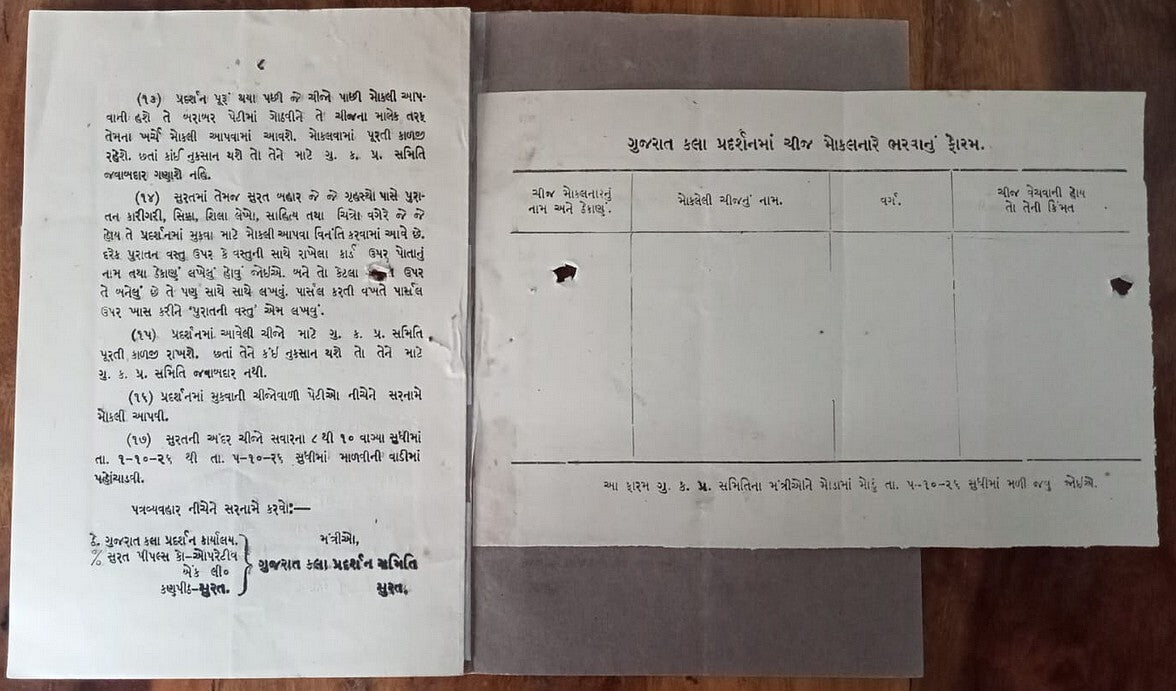 ૮
(૧૩) પ્રદર્શન પૂરૂં થયા પછી જે ચીજો પાછી મોકલી આપ-
વાની હશે તે બરાબર પેટીમાં ગોઠવીને તે ચીજના માલેક તરફ
તેમના ખર્ચે મોકલી આપવામાં આવશે. મોકલવામાં પૂરતી કાળજી
રહેશે. છતાં કાંઈ નુકસાન થશે તો તેને માટે ગુ. ક. પ્ર. સમિતિ
જવાબદાર ગણાશે નહિ.
(૧૪) સુરતમાં તેમજ સુરત બહાર જે જે ગૃહસ્થો પાસે પુરા-
તન કારીગરી, સિક્કા, શિલા લેખો, સાહિત્ય તથા ચિત્રો વગેરે જે જે
હોય તે પ્રદર્શનમાં મુકવા માટે મોકલી આપવા વિનંતિ કરવામાં આવે છે.
દરેક પુરાતન વસ્તુ ઉપર કે વસ્તુની સાથે રાખેલા કાર્ડ ઉપર પોતાનું
નામ તથા ઠેકાણું લખેલું હોવું જોઈએ. બને તો કેટલા ઉપર
તે બનેલું છે તે પણ સાથે સાથે લખવું. પાર્સલ કરતી વખતે પાર્સલ
ઉપર ખાસ કરીને ‘પુરાતની વસ્તુ’ એમ લખવું.
(૧૫) પ્રદર્શનમાં આવેલી ચીજો માટે ગુ. ક. પ્ર. સમિતિ
પૂરતી કાળજી રાખશે. છતાં તેને કંઈ નુકસાન થશે તો તેને માટે
ગુ. ક. પ્ર. સમિતિ જવાબદાર નથી.
(૧૬) પ્રદર્શનમાં મુકવાની ચીજોવાળી પેટીઓ નીચેને સરનામે
મોકલી આપવી.
(૧૭) સુરતની અંદર ચીજો સવારના ૮ થી ૧૦ વાગ્યા સુધીમાં
તા. ૧-૧૦-૨૬ થી તા. ૫-૧૦-૨૬ સુધીમાં માળવીની વાડીમાં
પહોંચાડવી.
પત્રવ્યવહાર નીચેને સરનામે કરવો:—
ઠે. ગુજરાત કલા પ્રદર્શન કાર્યાલય.
% સુરત પીપલ્સ કો-ઓપરેટીવ
બેંક લી૦
કણપીઠ-સુરત.
મંત્રીઓ,
ગુજરાત કલા પ્રદર્શન સમિતિ
સુરત.
ગુજરાત કલા પ્રદર્શનમાં ચીજ મોકલનારે ભરવાનું ફોરમ.
ચીજ મોકલનારનું
નામ અને ઠેકાણું.
મોકલેલી ચીજનું નામ.
વર્ગ.
ચીજ વેચવાની હોય
તો તેની કિંમત
આ ફારમ ગુ. ક. પ્ર. સમિતિના મંત્રીઓને મોડામાં મોડું તા. ૫-૧૦-૨૬ સુધીમાં મળી જવુ જોઈએ.